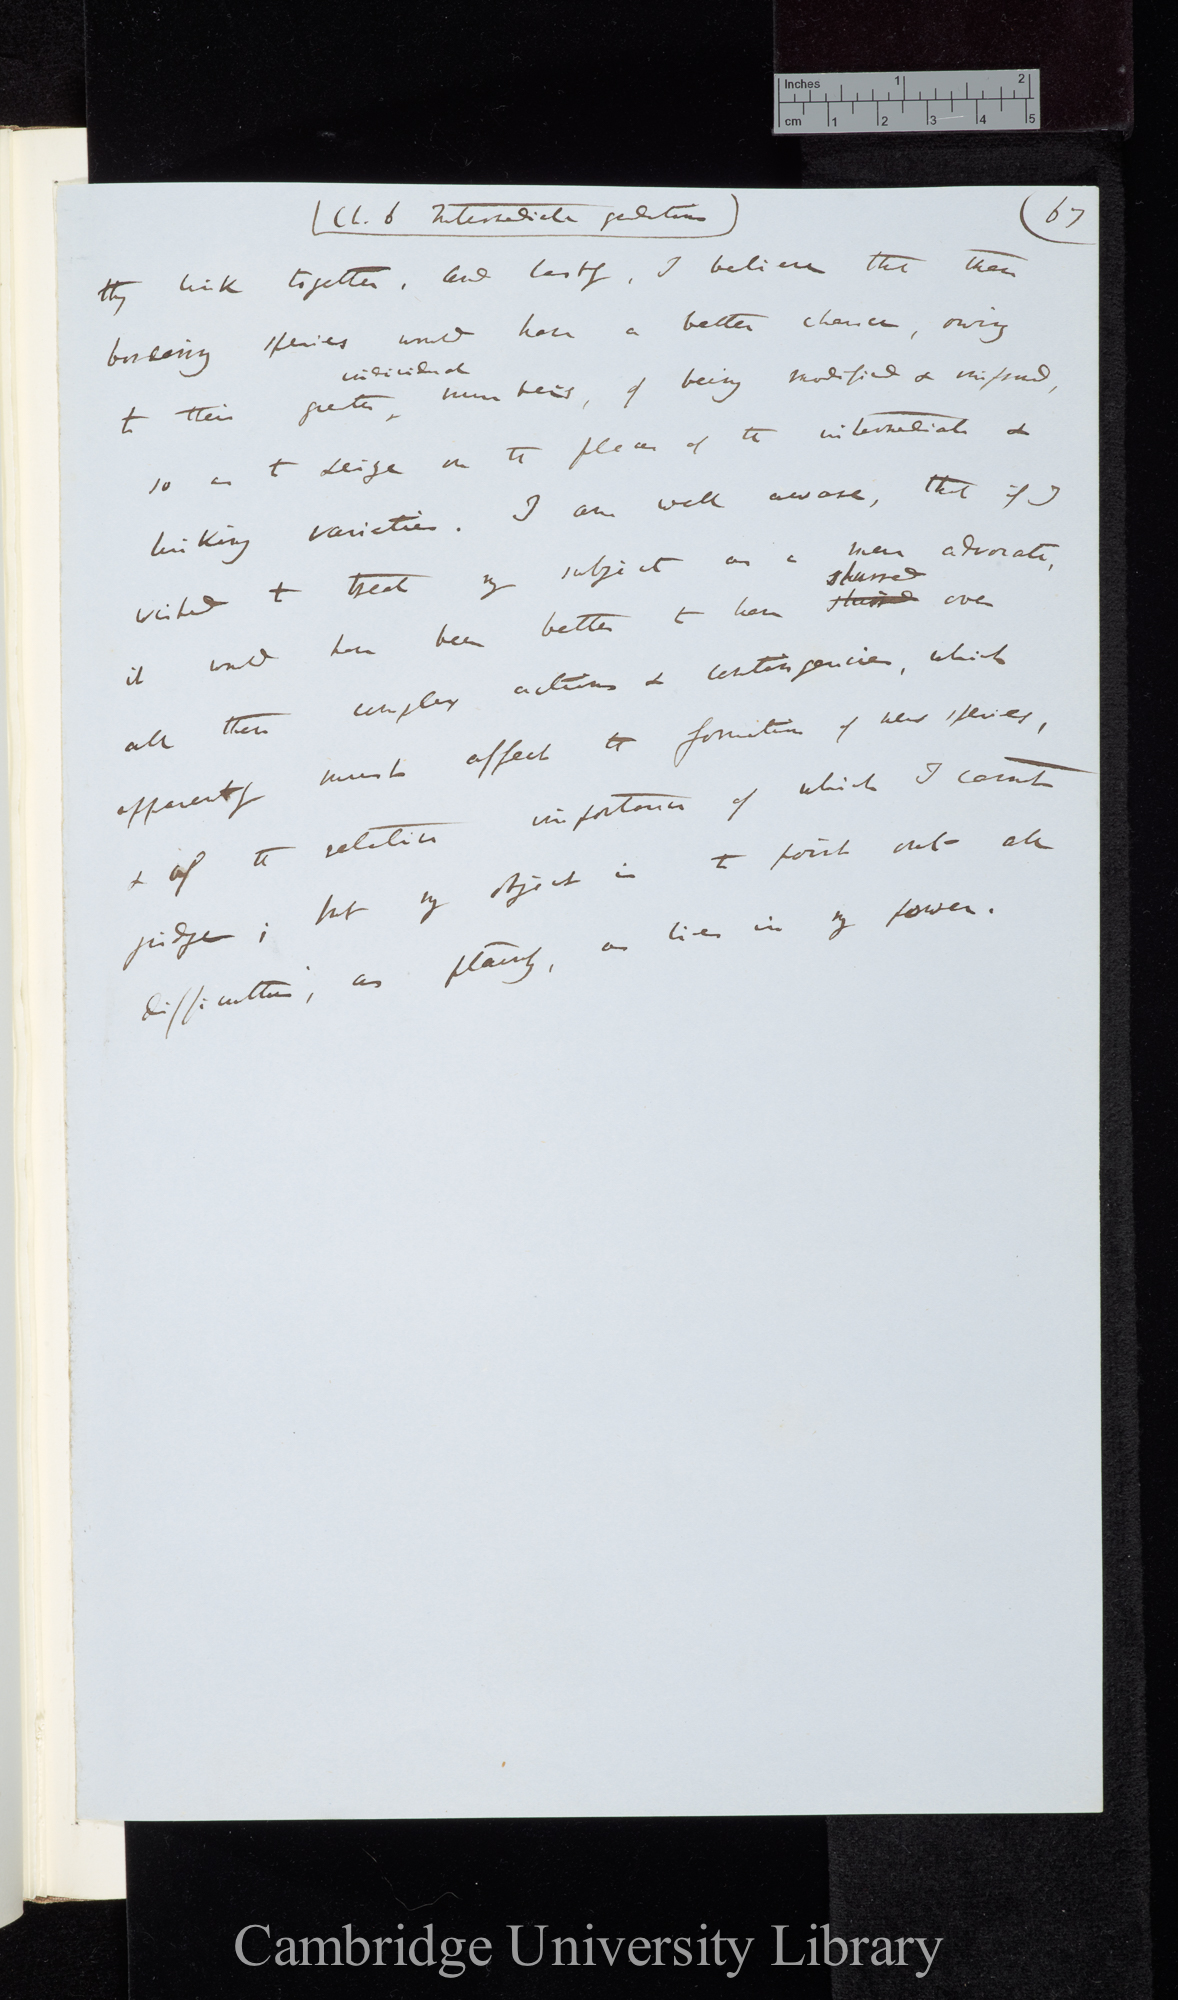 Inches 1 2
cm 1 2 3 4 5
(Ch. 6 Intermediate gradations)
(67
they link together, and lastly, I believe that these
bordering species would have a better chance, owing
individual
to their greater numbers, of being modified & improved,
so as to seize on the places of the intermediate &
linking varieties. I am well aware, that if I
wished to treat my subject as a mere advocate,
slurred
it would have been better to have slurred over
all these complex actions & contingencies, which
apparently must affect the formation of new species,
& of the relative importance of which I cannot
judge; but my object is to point out all
difficulties, as plainly, as lies in my power.
Cambridge University Library